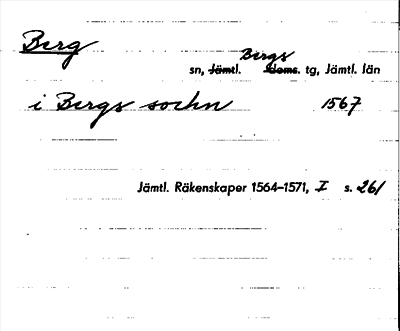 Berg
Bergs
sn, Jämtl. doms. tg, Jämtl. län
i Bergs sochn 1567
Jämtl. Räkenskaper 1564–1571, I s. 261